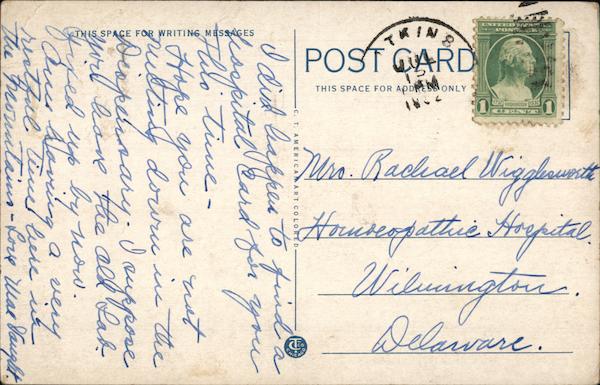 THIS SPACE FOR WRITING MESSAGES
I did happen to find a
hospital card for you
this time -
Hope you are not
rusting down in the
Dispensary. I suppose
you have the old Lab.
fixed up by now.
Am having a very
restful time here in
the Mountains - Love
C. T. AMERICAN ART COLORED
POST CARD
THIS SPACE FOR ADDRESS ONLY
TKINS
JUL
15
PM
1932
UNITED STATES POSTAGE
1 1
Mrs. Rachael Wigglesworth
Homoeopathic Hospital.
Wilmington.
Delaware.